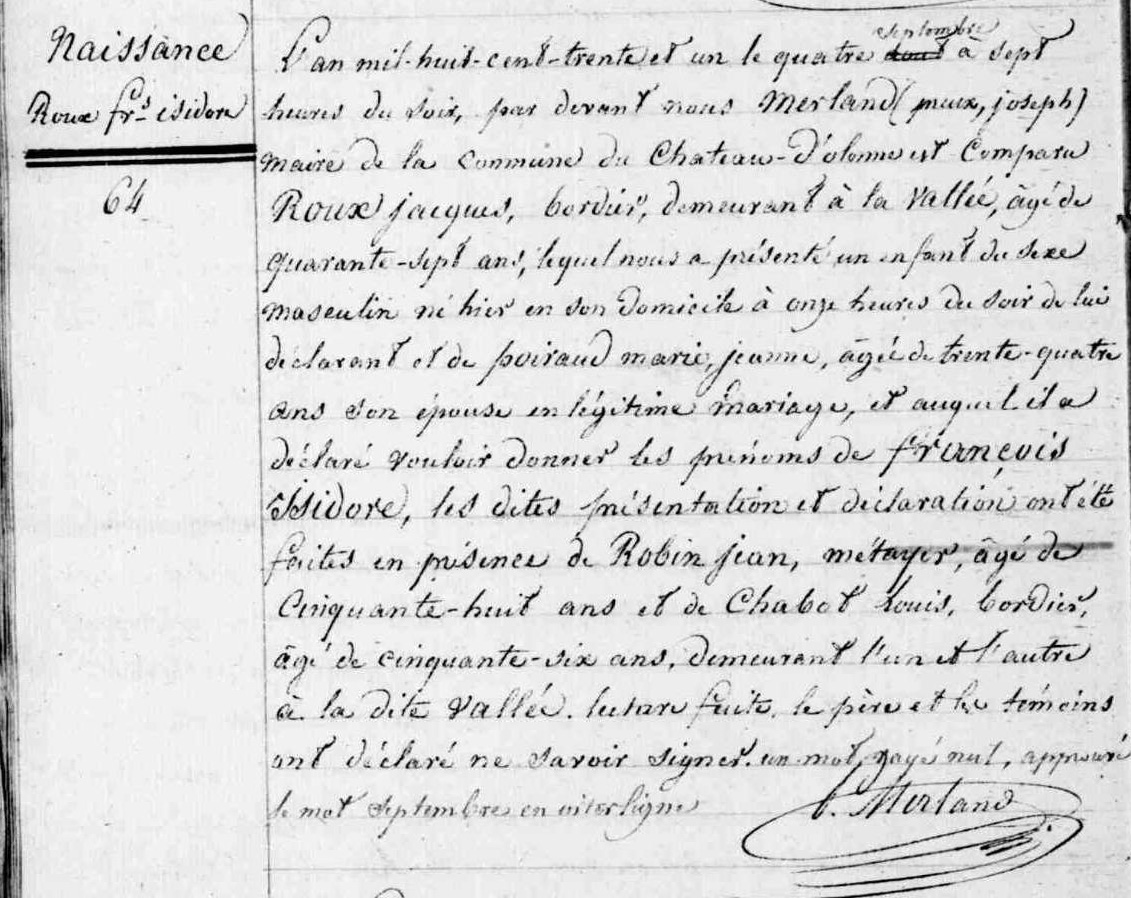 Naissance
Roux frs isidore
64
L'an mil-huit-cent-trente et un le quatre août septembre à sept
heures du soir, par devant nous Merland (pieux, joseph)
maire de la Commune du Chateau-d'olonne est Comparu
Roux jacques, bordier, demeurant à la Vallée, âgé de
quarante-sept ans, lequel nous a présenté un enfant du sexe
masculin né hier en son domicile à onze heures du soir de lui
déclarant et de poiraud marie, jeanne, âgée de trente-quatre
ans son épouse en légitime mariage, et auquel il a
déclaré vouloir donner les prénoms de françois
isidore, les dites présentation et déclaration ont été
faites en présence de Robin jean, métayer, âgé de
Cinquante-huit ans et de Chabot Louis, bordier,
âgé de cinquante-six ans, demeurant l'un et l'autre
à la dite Vallée. lecture faite, le père et les témoins
ont déclaré ne savoir signer. un mot, rayé nul, approuvé
le mot septembre en interligne
Merland